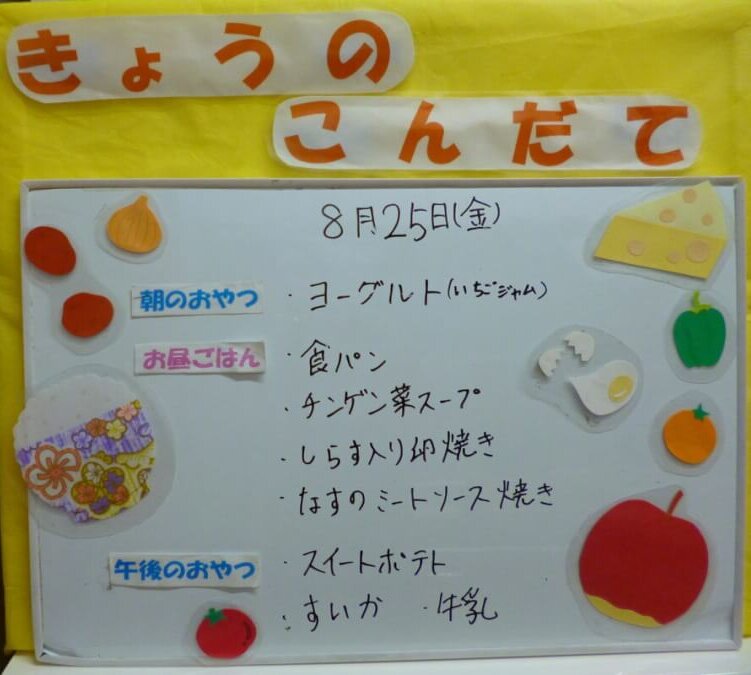 きょうの
こんだて
8月25日(金)
朝のおやつ ・ヨーグルト(いちごジャム)
お昼ごはん ・食パン
・チンゲン菜スープ
・しらす入り卵焼き
・なすのミートソース焼き
午後のおやつ ・スイートポテト
・すいか ・牛乳